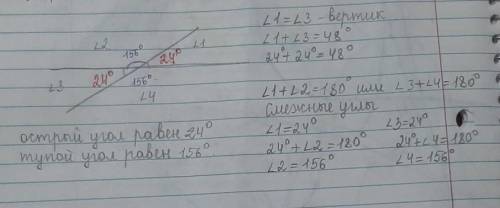 ∠2
∠1
156°
24°
24°
156°
∠3
∠4
острой угол равен 24°
тупой угол равен 156°
∠1=∠3 - вертик
∠1+∠3=48°
24°+24°=48°
∠1+∠2=180° или ∠3+∠4=180°
Смежные углы
∠1=24° ∠3=24°
24°+∠2=180° 24°+∠4=180°
∠2=156° ∠4=156°